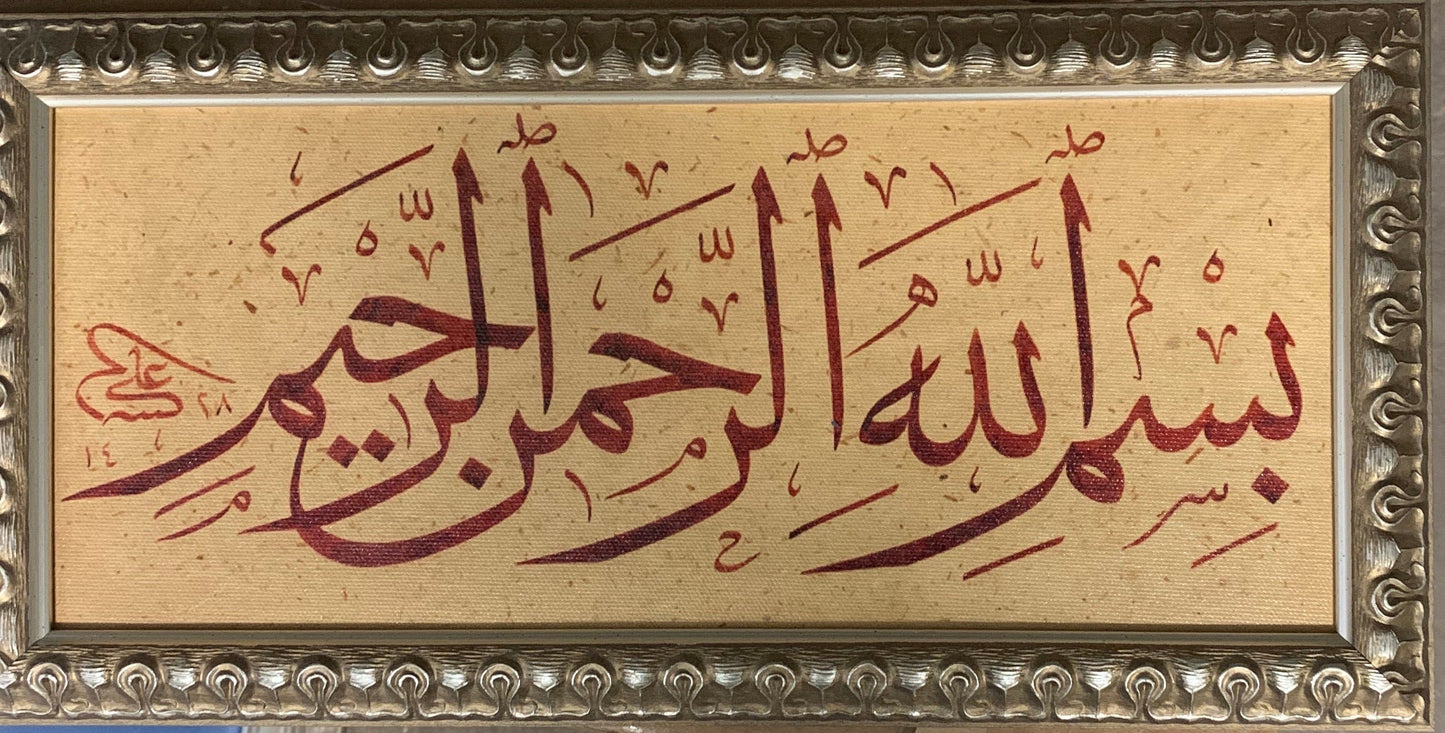 بِسْمِ اللّٰهِ الرَّحْمٰنِ الرَّحِيْمِ
علي
١٤ ٢٨